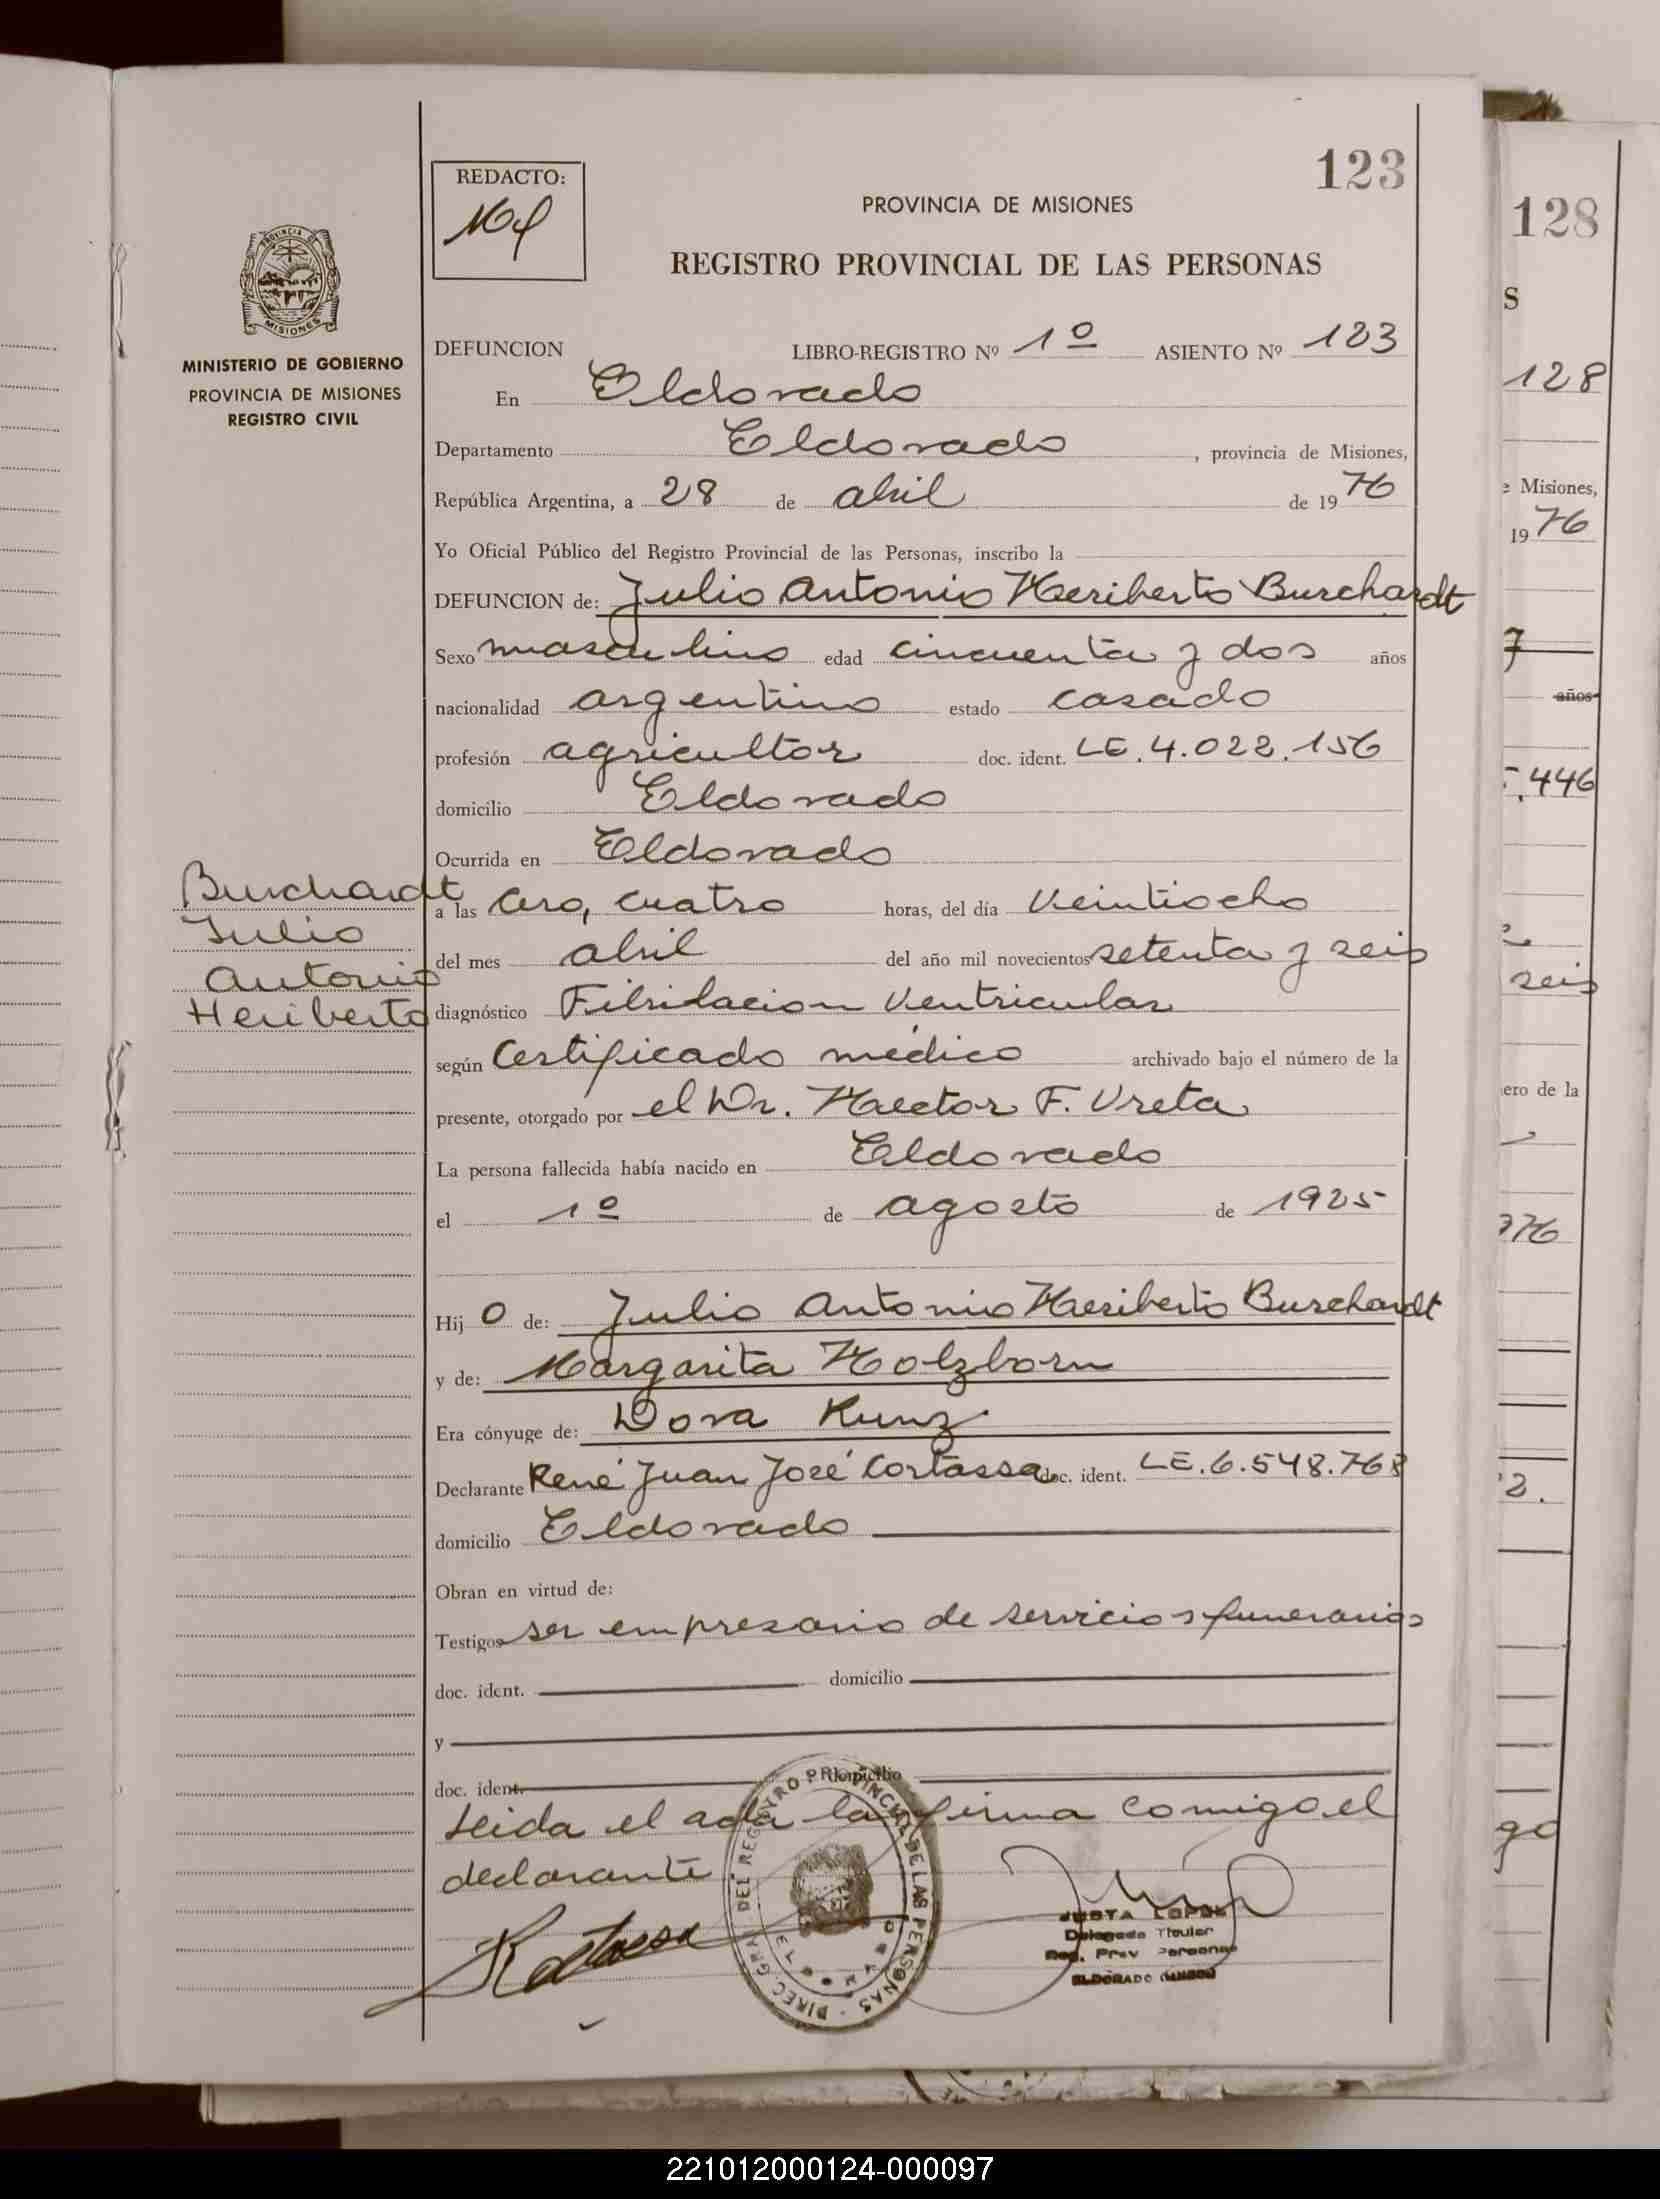 123
REDACTO:
PROVINCIA DE MISIONES
128
REGISTRO PROVINCIAL DE LAS PERSONAS
S
PROVINCIA DE
MISIONES
MINISTERIO DE GOBIERNO
PROVINCIA DE MISIONES
REGISTRO CIVIL
DEFUNCION LIBRO-REGISTRO Nº 1º ASIENTO Nº 123
128
En Eldorado
Departamento Eldorado, provincia de Misiones,
República Argentina, a 28 de abril de 1976
e Misiones,
1976
Yo Oficial Público del Registro Provincial de las Personas, inscribo la
DEFUNCION de: Julio Antonio Heriberto Burchardt
Sexo masculino edad cincuenta y dos años
años
nacionalidad argentino estado casado
profesión agricultor doc. ident. LE.4.022.156
.446
domicilio Eldorado
Ocurrida en Eldorado
Burchardt
Julio
Antonio
Heriberto
a las Cero, cuatro horas, del día Veintiocho
del mes abril del año mil novecientos setenta y seis
seis
diagnóstico Fibrilacion Ventricular
según Certificado médico archivado bajo el número de la
ero de la
presente, otorgado por el Dr. Haector F. Ureta
La persona fallecida había nacido en Eldorado
el 1º de agosto de 1925
976
Hijo de: Julio Antonio Heriberto Burchardt
y de: Margarita Holzborn
Era cónyuge de: Dora Kunz
Declarante René Juan José Cortassa doc. ident. LE.6.548.768
2.
domicilio Eldorado
Obran en virtud de:
Testigos ser empresario de servicios funerarios
doc. ident. domicilio
y
doc. ident. domicilio
Leida el acta la firma comigo el
declarante
go
DIREC. GRAL. DEL REGISTRO PROVINCIAL DE LAS PERSONAS
ELDORADO
JUSTA LOPEZ
Delegada Titular
Reg. Prov Personas
ELDORADO (MNES)
221012000124-000097